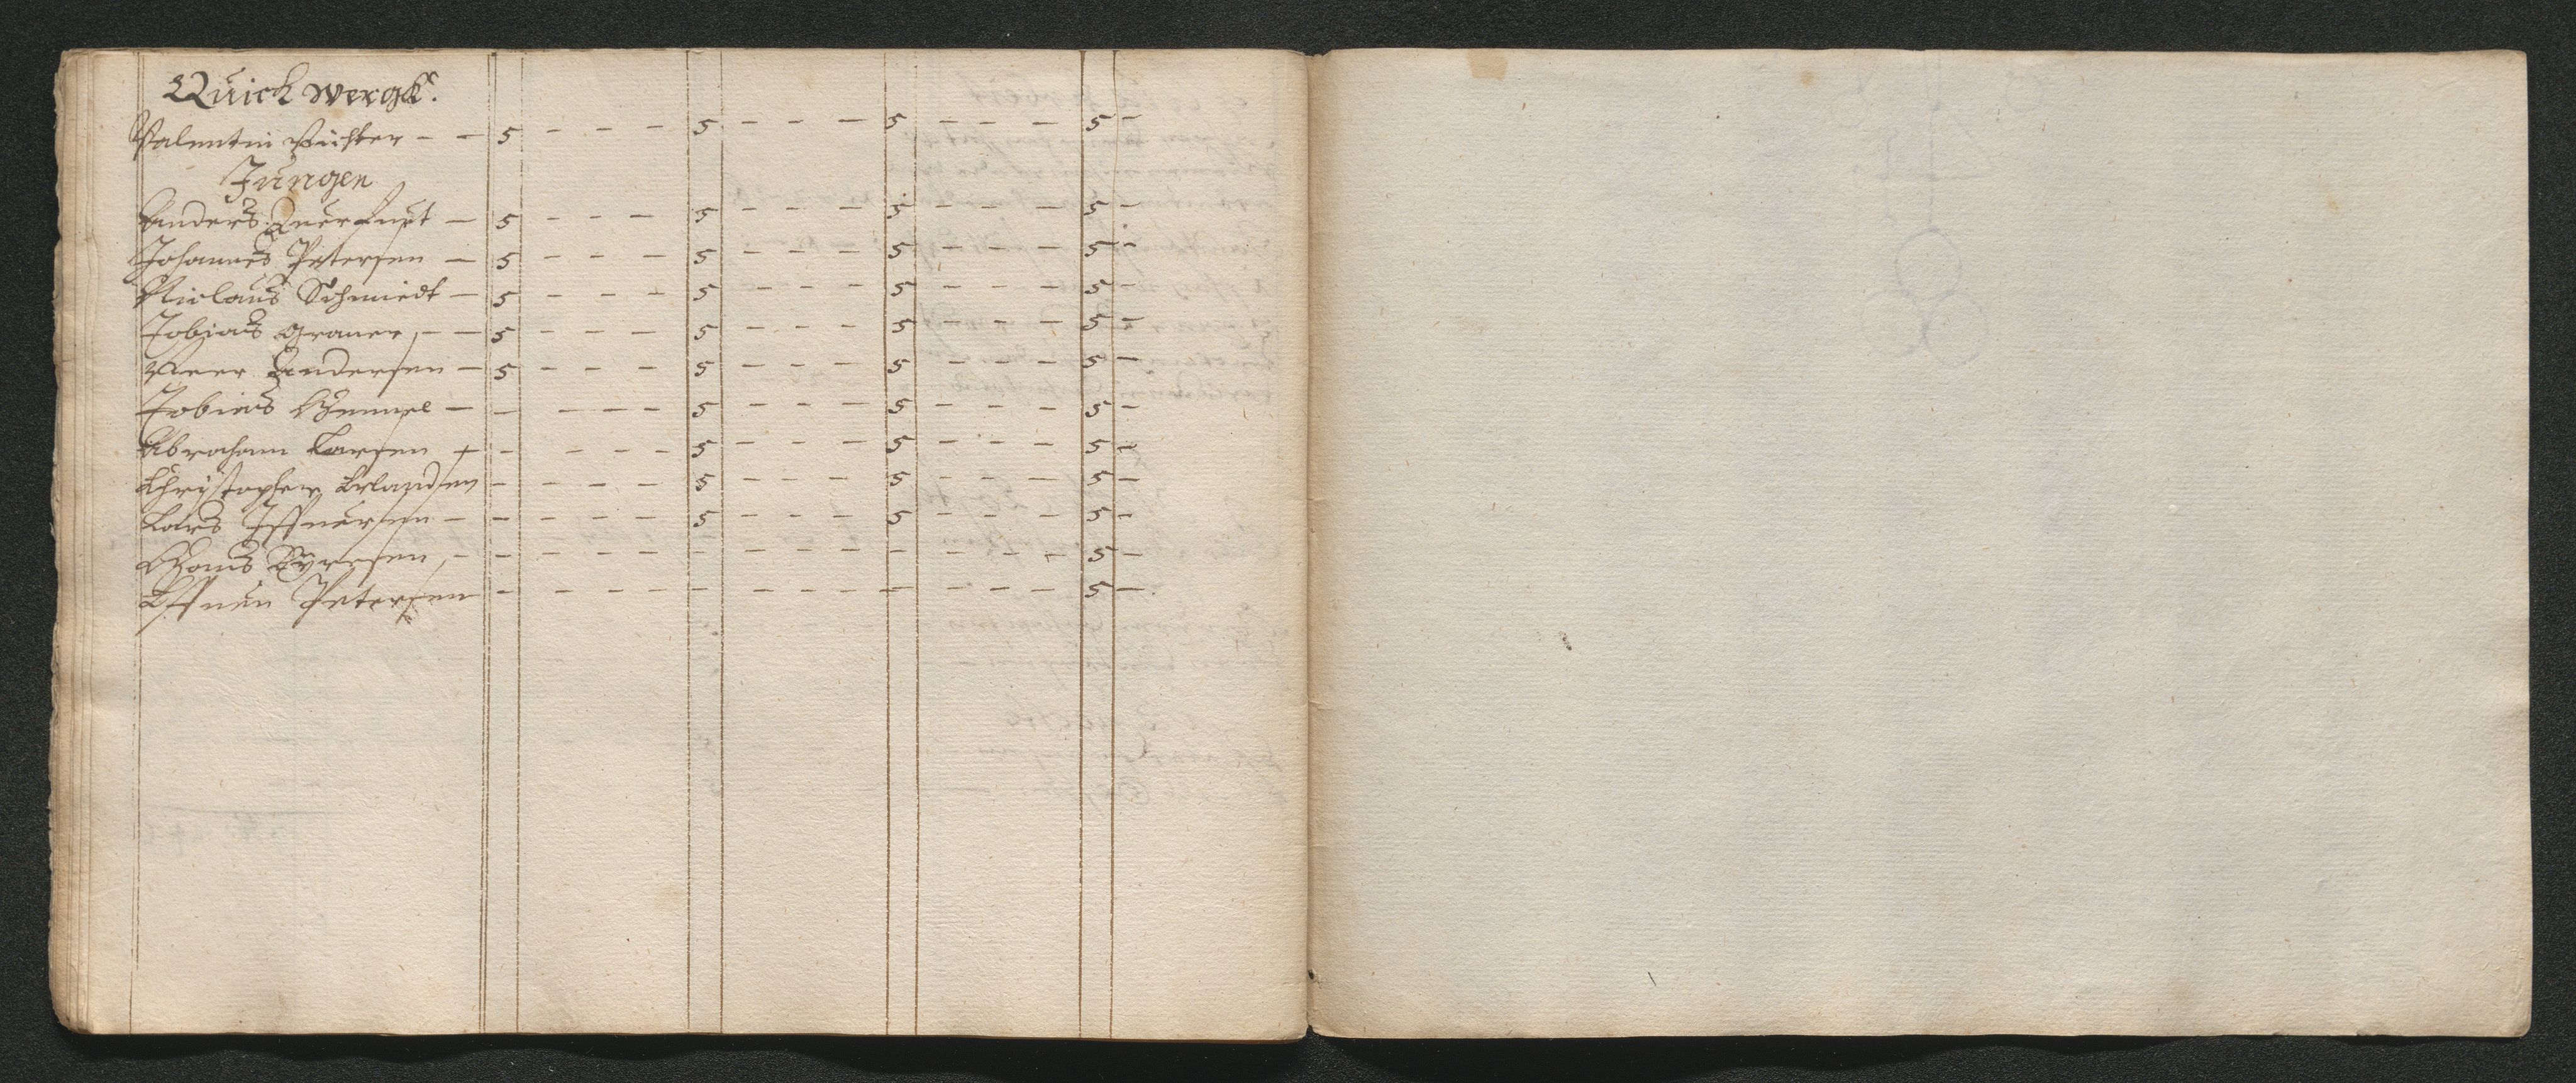 Quick wergk.
Valentin Richter - - 5 - - - 5 - - - 5 - - - 5 -
Jungen
Anders - 5 - - - 5 - - - 5 - - - 5 -
Johannes Petersen - 5 - - - 5 - - - 5 - - - 5 -
Niclaus Schmiedt - 5 - - - 5 - - - 5 - - - 5 -
Tobias Graner - - 5 - - - 5 - - - 5 - - - 5 -
Andersen - 5 - - - 5 - - - 5 - - - 5 -
Tobias Hempel - - - - - 5 - - - 5 - - - 5 -
Abraham Larsen - - - - - 5 - - - 5 - - - 5 -
Christopher Erlandsen - - - - 5 - - - 5 - - - 5 -
Lars - - - - - 5 - - - 5 - - - 5 -
Hans - - - - - - - - - - - - - 5 -
Petersen - - - - - - - - - - - - 5 -